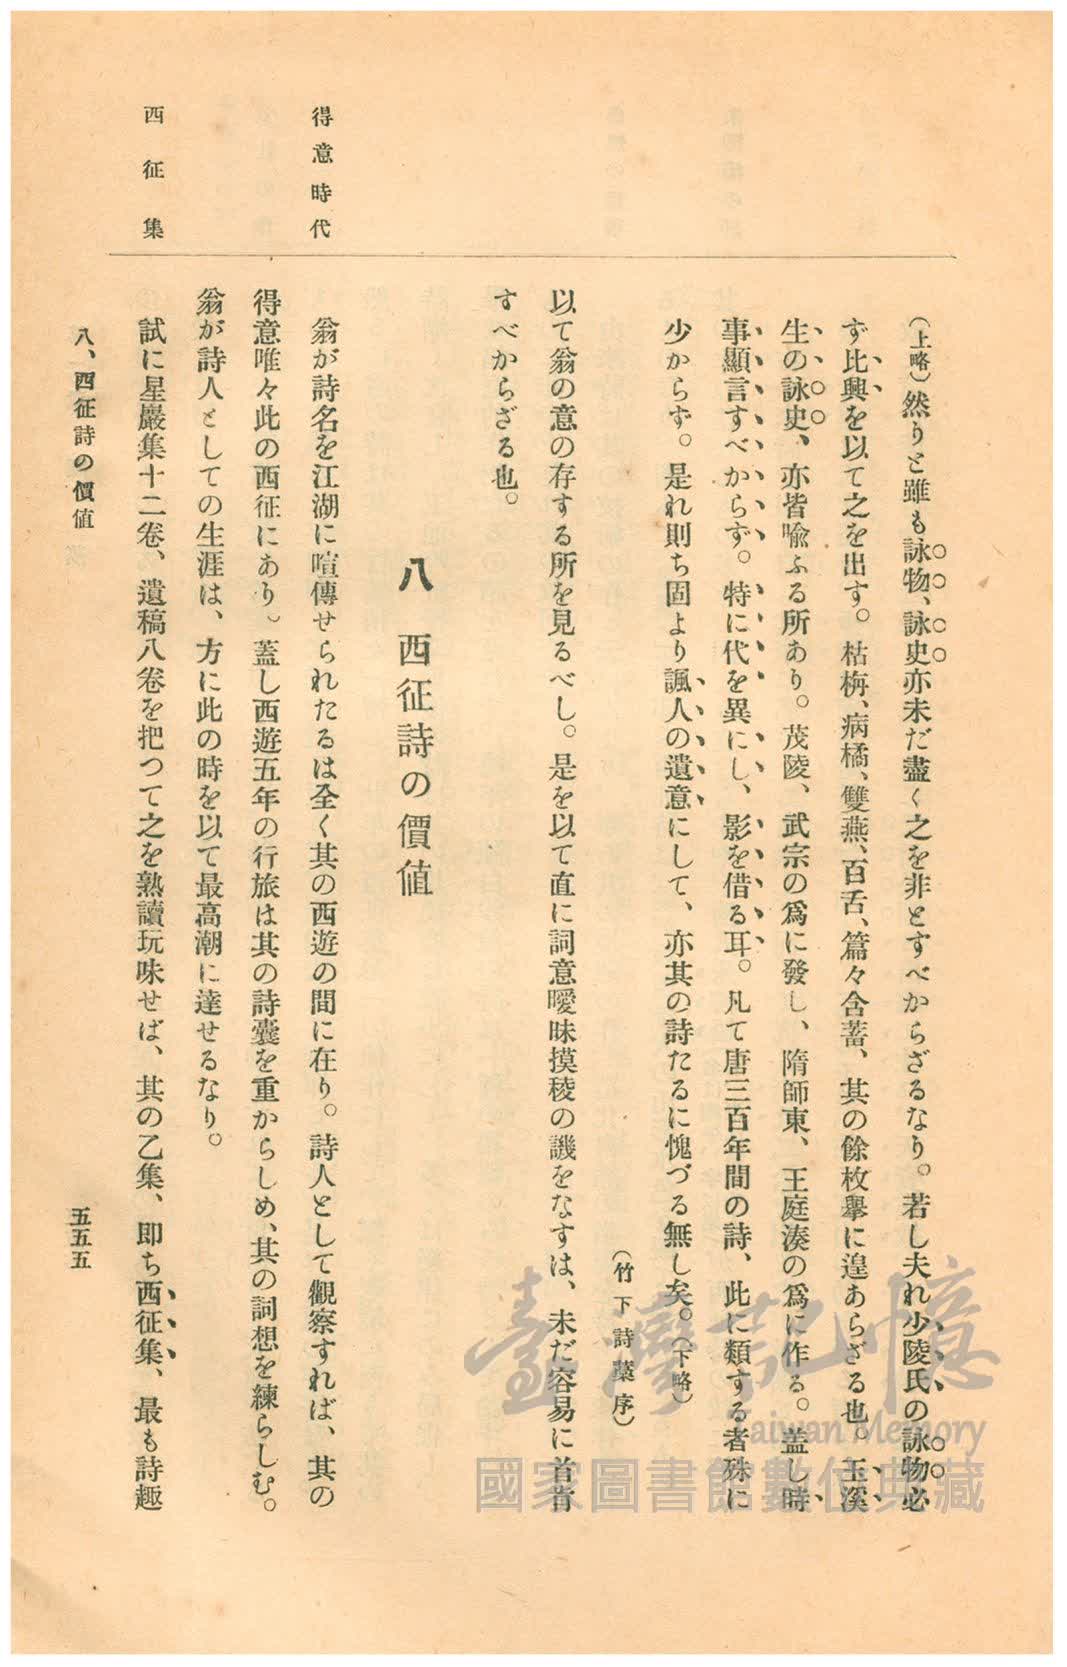 (上略)然りと雖も詠物、詠史亦未だ盡く之を非とすべからざるなり。若し夫れ少陵氏の詠物必
ず比興を以て之を出す。枯栴、病橘、雙燕、百舌、篇々含蓄、其の餘枚擧に遑あらざる也。玉溪
生の詠史、亦皆喩ふる所あり。茂陵、武宗の爲に發し、隋師東、王庭湊の爲に作る。蓋し時
事顯言すべからず。特に代を異にし、影を借る耳。凡て唐三百年間の詩、此に類する者殊に
少からず。是れ則ち固より諷人の遺意にして、亦其の詩たるに愧づる無し矣。(下略)
(竹下詩藁序)
以て翁の意の存する所を見るべし。是を以て直に詞意曖昧摸稜の譏をなすは、未だ容易に首肯
すべからざる也。
八 西征詩の價値
得意時代
翁が詩名を江湖に喧傳せられたるは全く其の西遊の間に在り。詩人として觀察すれば、其の
得意唯々此の西征にあり。蓋し西遊五年の行旅は其の詩囊を重からしめ、其の詞想を練らしむ。
翁が詩人としての生涯は、方に此の時を以て最高潮に達せるなり。
西征集
試に星巖集十二卷、遺稿八卷を把つて之を熟讀玩味せば、其の乙集、即ち西征集、最も詩趣
八、西征詩の價値
五五五
臺灣記憶
Taiwan Memory
國家圖書館數位典藏